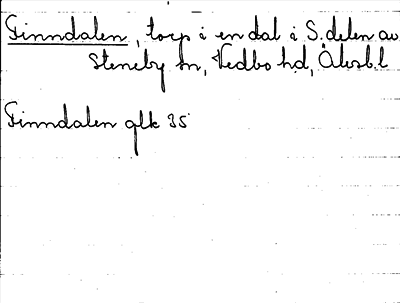 Finndalen, torp i en dal i S. delen av
Steneby sn, Vedbo hd, Älvsb. l
Finndalen glk 35